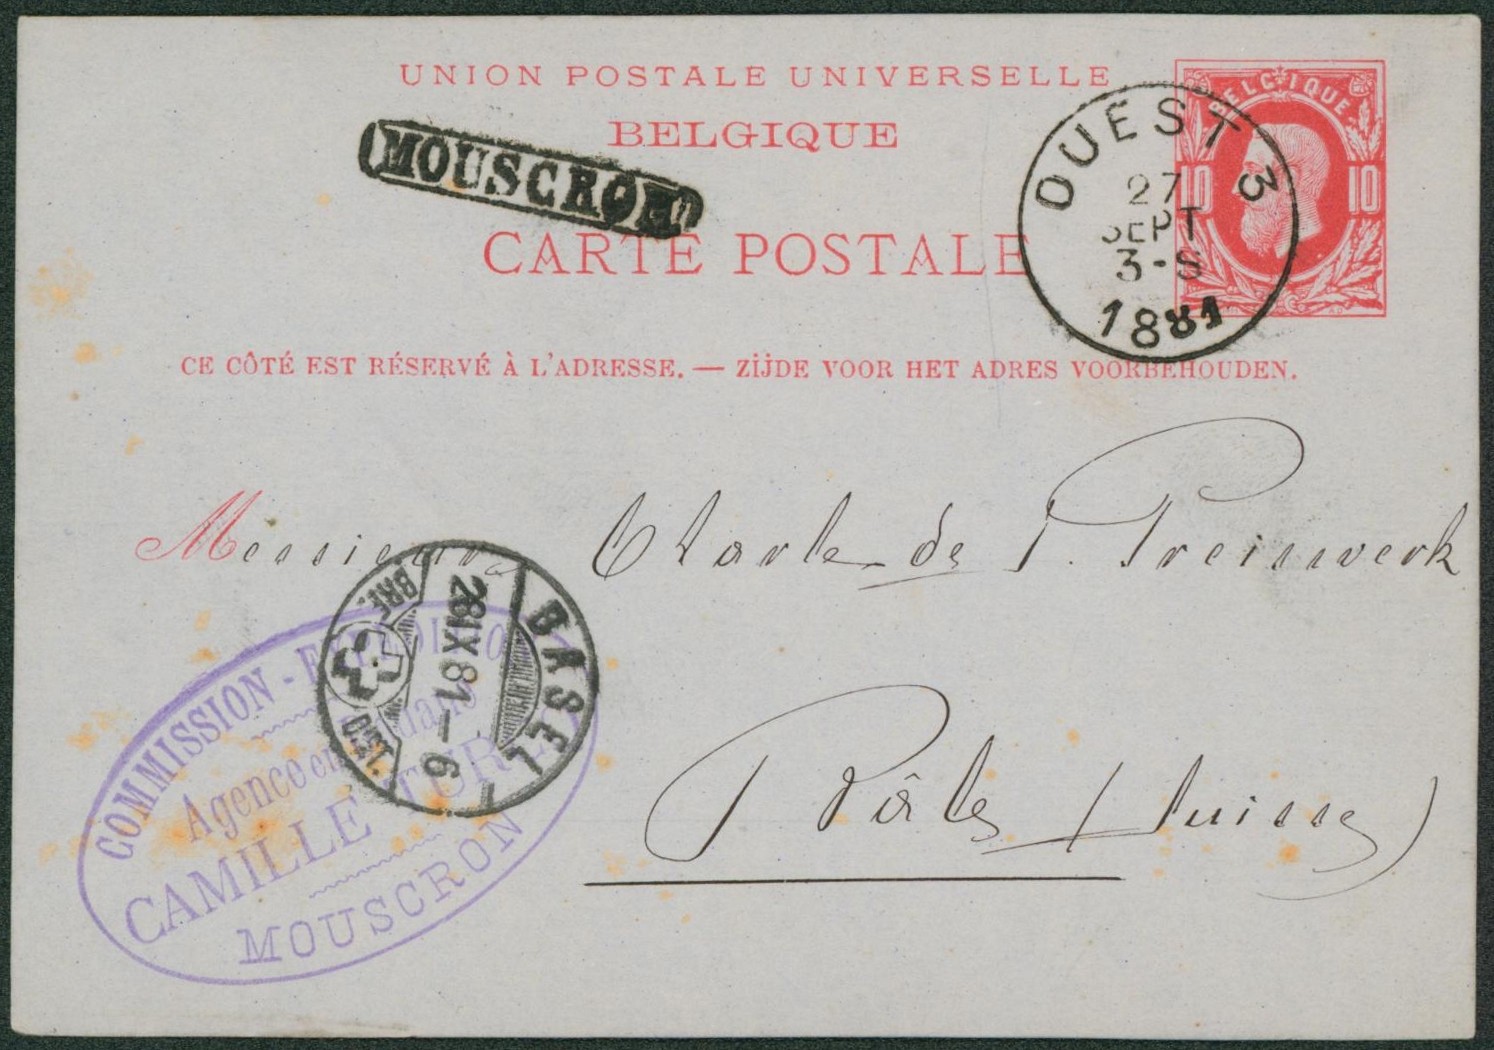 UNION POSTALE UNIVERSELLE
BELGIQUE
CARTE POSTALE
CE CÔTÉ EST RÉSERVÉ À L'ADRESSE. — ZIJDE VOOR HET ADRES VOORBEHOUDEN.
BELGIQUE
10 10
MOUSCRON
OUEST 3
27
SEPT
3-S
1881
Messieurs de P. Preiswerk
Bâle (Suisse)
BASEL
28 IX 81-6
BRF.
COMMISSION -
Agence en
CAMILLE
MOUSCRON